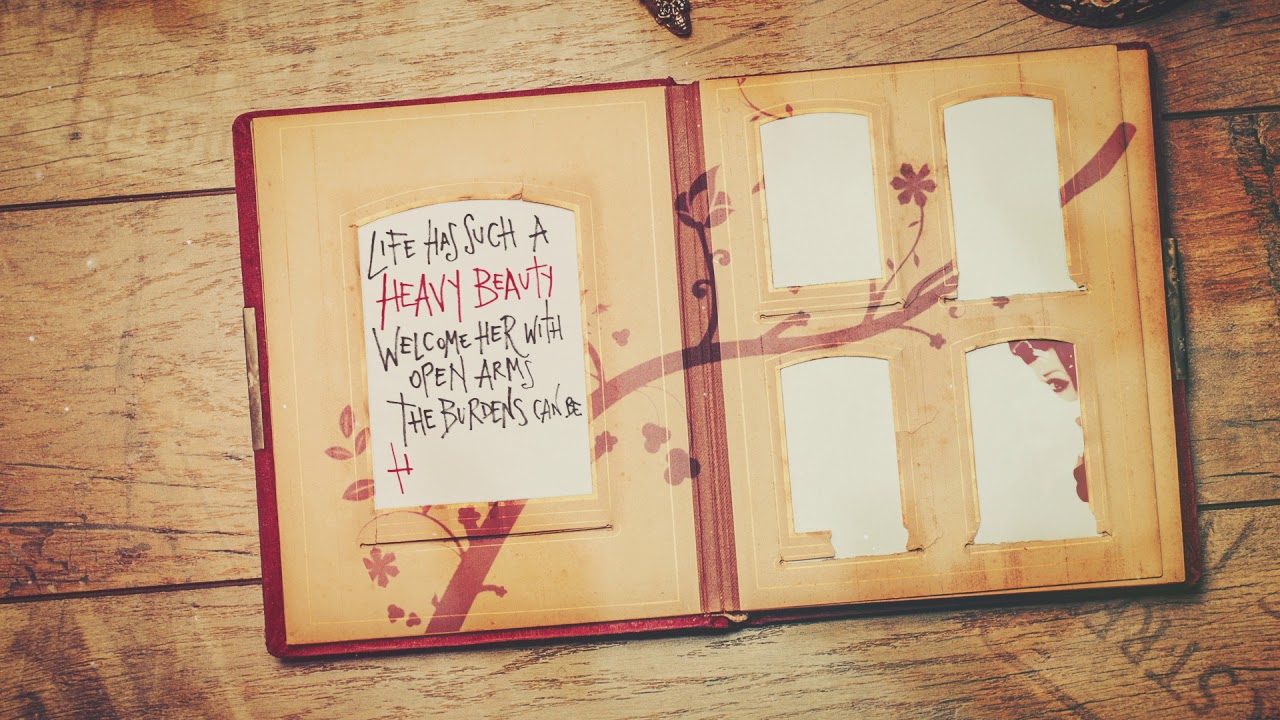 LIFE HAS SUCH A
HEAVY BEAUTY
WELCOME HER WITH
OPEN ARMS
THE BURDENS CAN BE
H